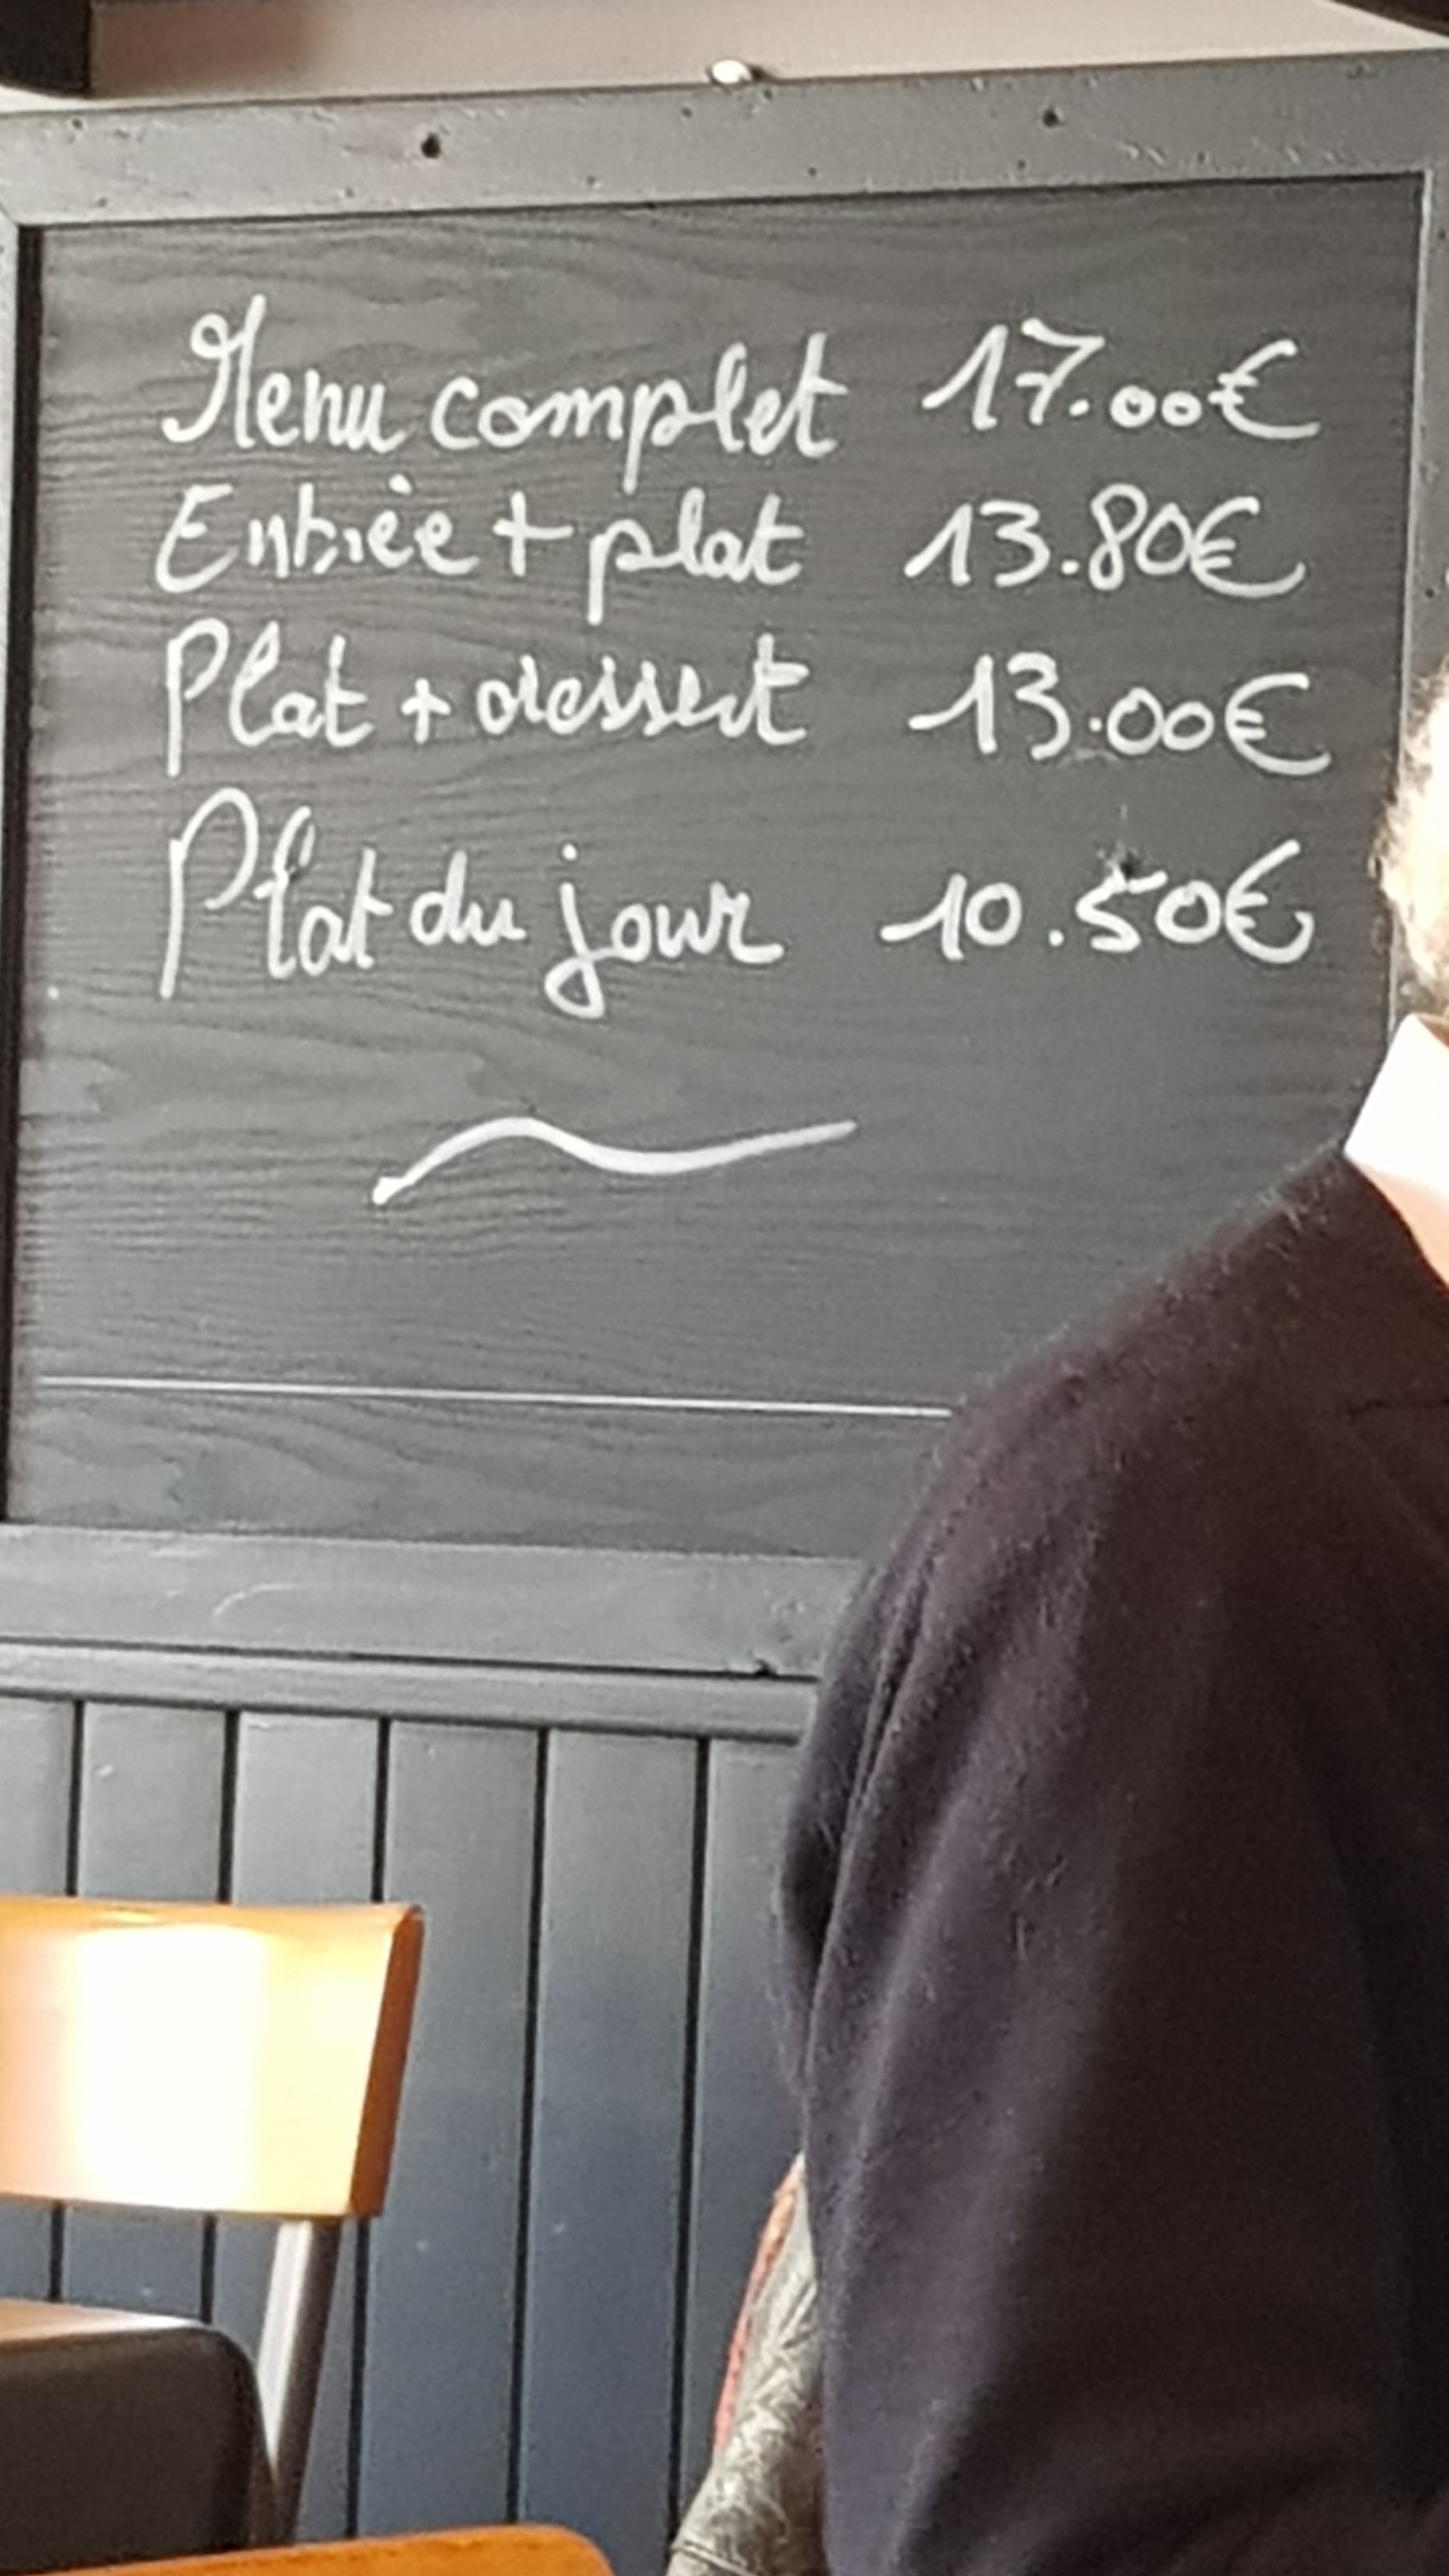 Menu complet 17.00€
Entrèe + plat 13.80€
Plat + dessert 13.00€
Plat du jour 10.50€